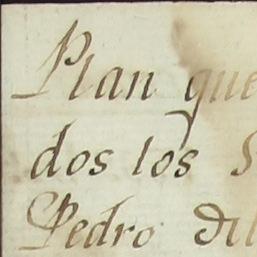 Plan que
dos los S
Pedro